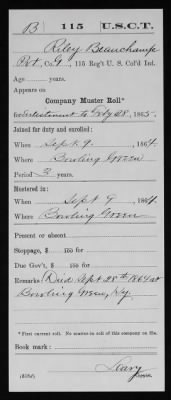 B | 115 | U.S.C.T.
Riley Beauchamp
Pvt., Co. G, 115 Reg't U. S. Col'd Inf.
Age years.
Appears on
Company Muster Roll*
for Enlistment to Feby 28, 1865.
Joined for duty and enrolled:
When Sept. 9, 1864.
Where Bowling Green
Period 3 years.
Mustered in:
When Sept 9, 1864.
Where Bowling Green
Present or absent
Stoppage, $ 100 for
Due Gov't, $ 100 for
Remarks: Died Sept 28th 1864 at
Bowling Green, Ky.
*First current roll. No muster-in roll of this company on file.
Book mark:
Leary
Copyist.